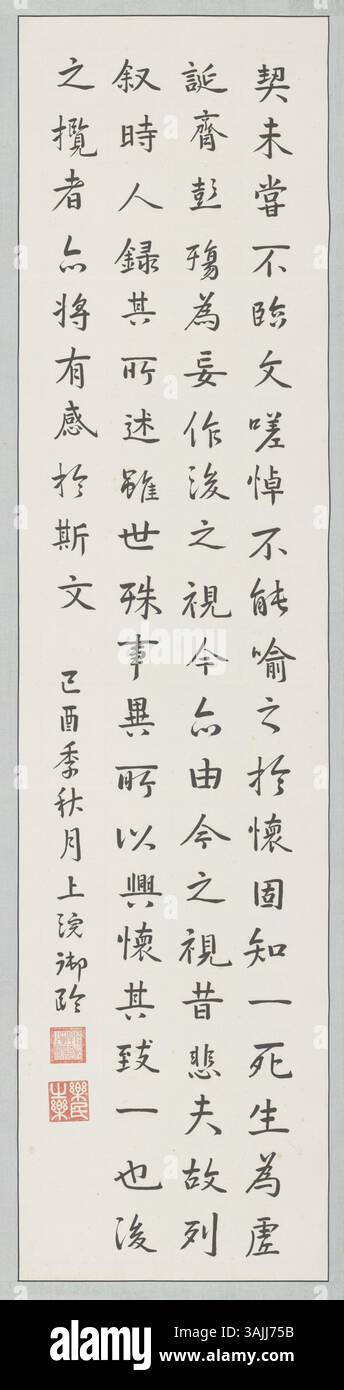 契未甞不臨文嗟悼不能喻之於懷固知一死生為虛
誕齊彭殤為妄作後之視今亦由今之視昔悲夫故列
叙時人録其所述雖世殊事異所以興懷其致一也後
之攬者亦將有感於斯文
己酉季秋月上浣御臨
樂民
之樂
alamy
alamy
Image ID: 3AJJ75B
www.alamy.com